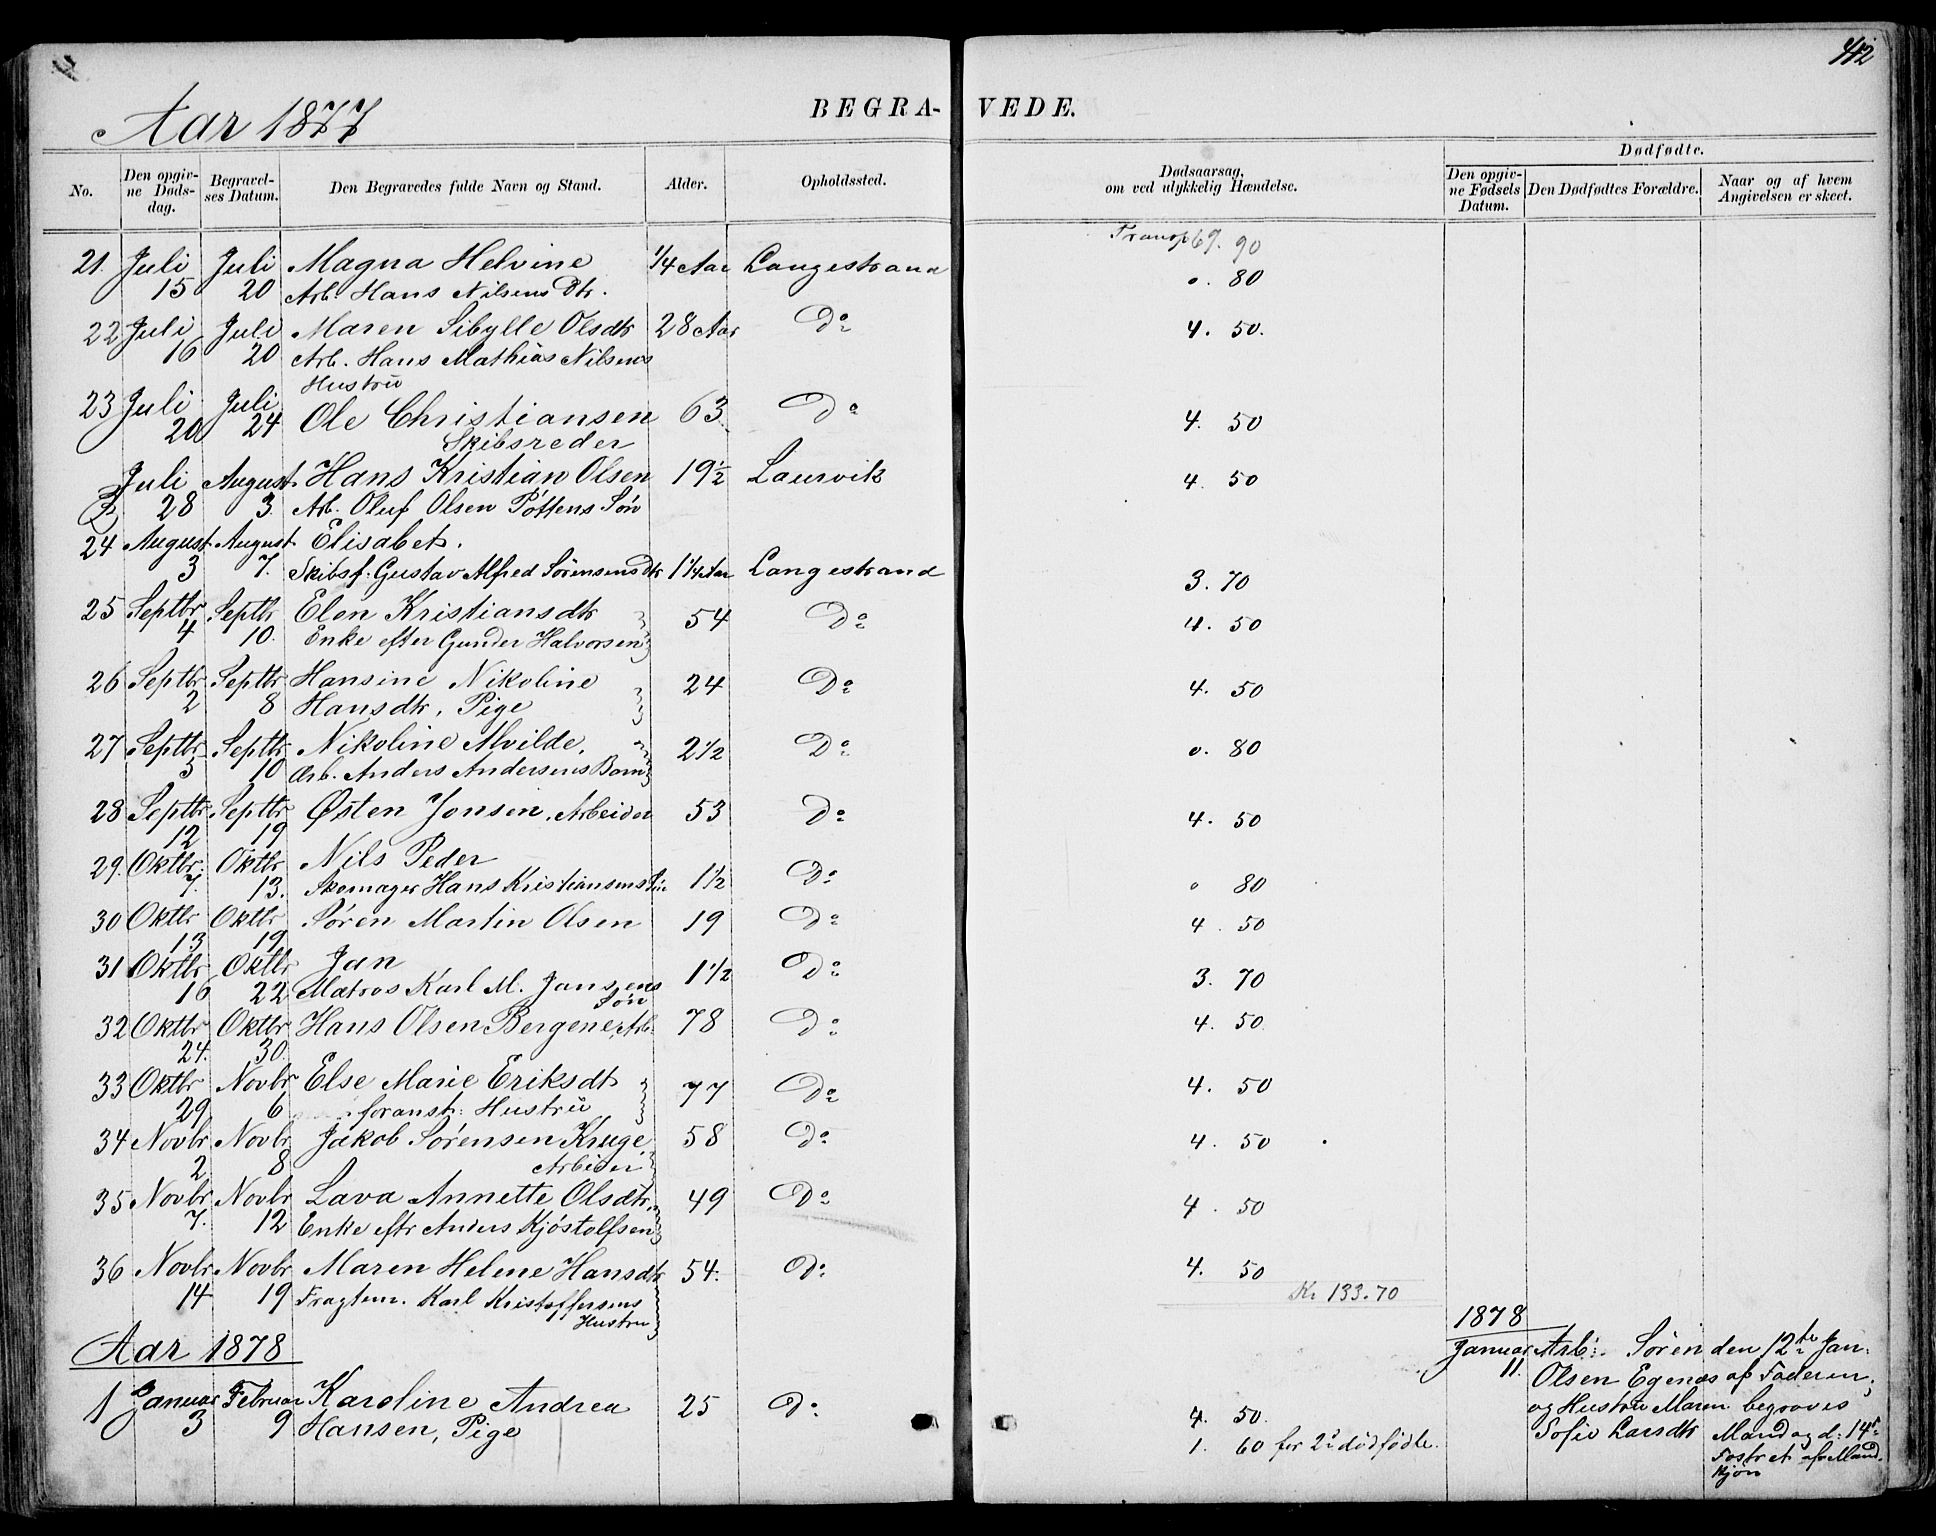 412
Aar 1877
BEGRA- VEDE.
Dødfødte.
No. Den opgiv- Begravel- Den Begravedes fulde Navn og Stand. Alder. Opholdssted. Dødsaarsag, Den opgiv- Den Dødfødtes Forældre. Naar og af hvem
ne Døds- ses Datum. om ved ulykkelig Hændelse. ne Fødsels Angivelsen er skeet.
dag. Datum.
Transp 69. 90
21. Juli Juli Magna Helvine 1/4 Aar Langestrand 0. 80
15 20 Arb. Hans Nilsens Dtr.
22 Juli Juli Maren Sibylle Olsdtr 28 Aar Do 4. 50.
16 20 Arb. Hans Mathias Nilsens
Hustru
23 Juli Juli Ole Christiansen 63 Do 4. 50
20 24 Skibsreder
Juli August Hans Kristian Olsen 19 1/2 Laurvik 4. 50
28 3. Arb. Oluf Olsen Pöttens Sön
24 August August Elisabet.
3 7. Skibsf. Gustav Alfred Sörensens Dtr 1 1/4 Aar Langestrand 3. 70
25 Septbr Septbr Elen Kristiansdtr 54 Do 4. 50
4 10. Enke efter Gunder Halvorsen
26 Septbr Septbr Hansine Nikoline 24 Do 4. 50
2 8 Hansdtr, Pige
27 Septbr Septbr Nikoline Alvilde, 2 1/2 Do 0. 80
5 10 Arb. Anders Andersens Barn
28 Septbr Septbr Østen Jonsen, Arbeider 53 Do 4. 50
12 19
29. Oktbr. Oktbr Nils Peder
7. 13. Skomager Hans Kristiansens Sön 1 1/2 Do 0 80
30 Oktbr Oktbr Sören Martin Olsen 19 Do 4. 50
13 19
31 Oktbr Oktbr Jan 1 1/2 Do 3. 70
16 22 Matros Karl M. Jansens
Sön
32 Oktbr Oktbr Hans Olsen Bergene, Arb. 78 Do 4. 50
24. 30.
33 Oktbr Novbr Else Marie Eriksdt 77 Do 4. 50
29 6 foranst: Hustru
34 Novbr Novbr Jakob Sörensen Kruge, 58 Do 4. 50
2 8 Arbeider
35 Novbr Novbr Lava Annette Olsdtr, 49 Do 4. 50
7. 12 Enke eftr Anders Kjöstolfsen
36 Novbr Novbr Maren Helene Hansdtr 54. Do 4. 50
14 19 Fragtem. Karl Kristoffersens
Hustru
Kr 133.70
Aar 1878
1 Januar Februar Karoline Andrea 25 Do 4. 50.
3 9 Hansen, Pige
1. 60 for 2 dödfödte.
1878
Januar Arb: Sören den 12te Jan:
11. Olsen Egenæs af Faderen;
og Hustru Maren begraves
Sofie Larsdtr Mandag d: 14de
Fostret af Mand-
kjön